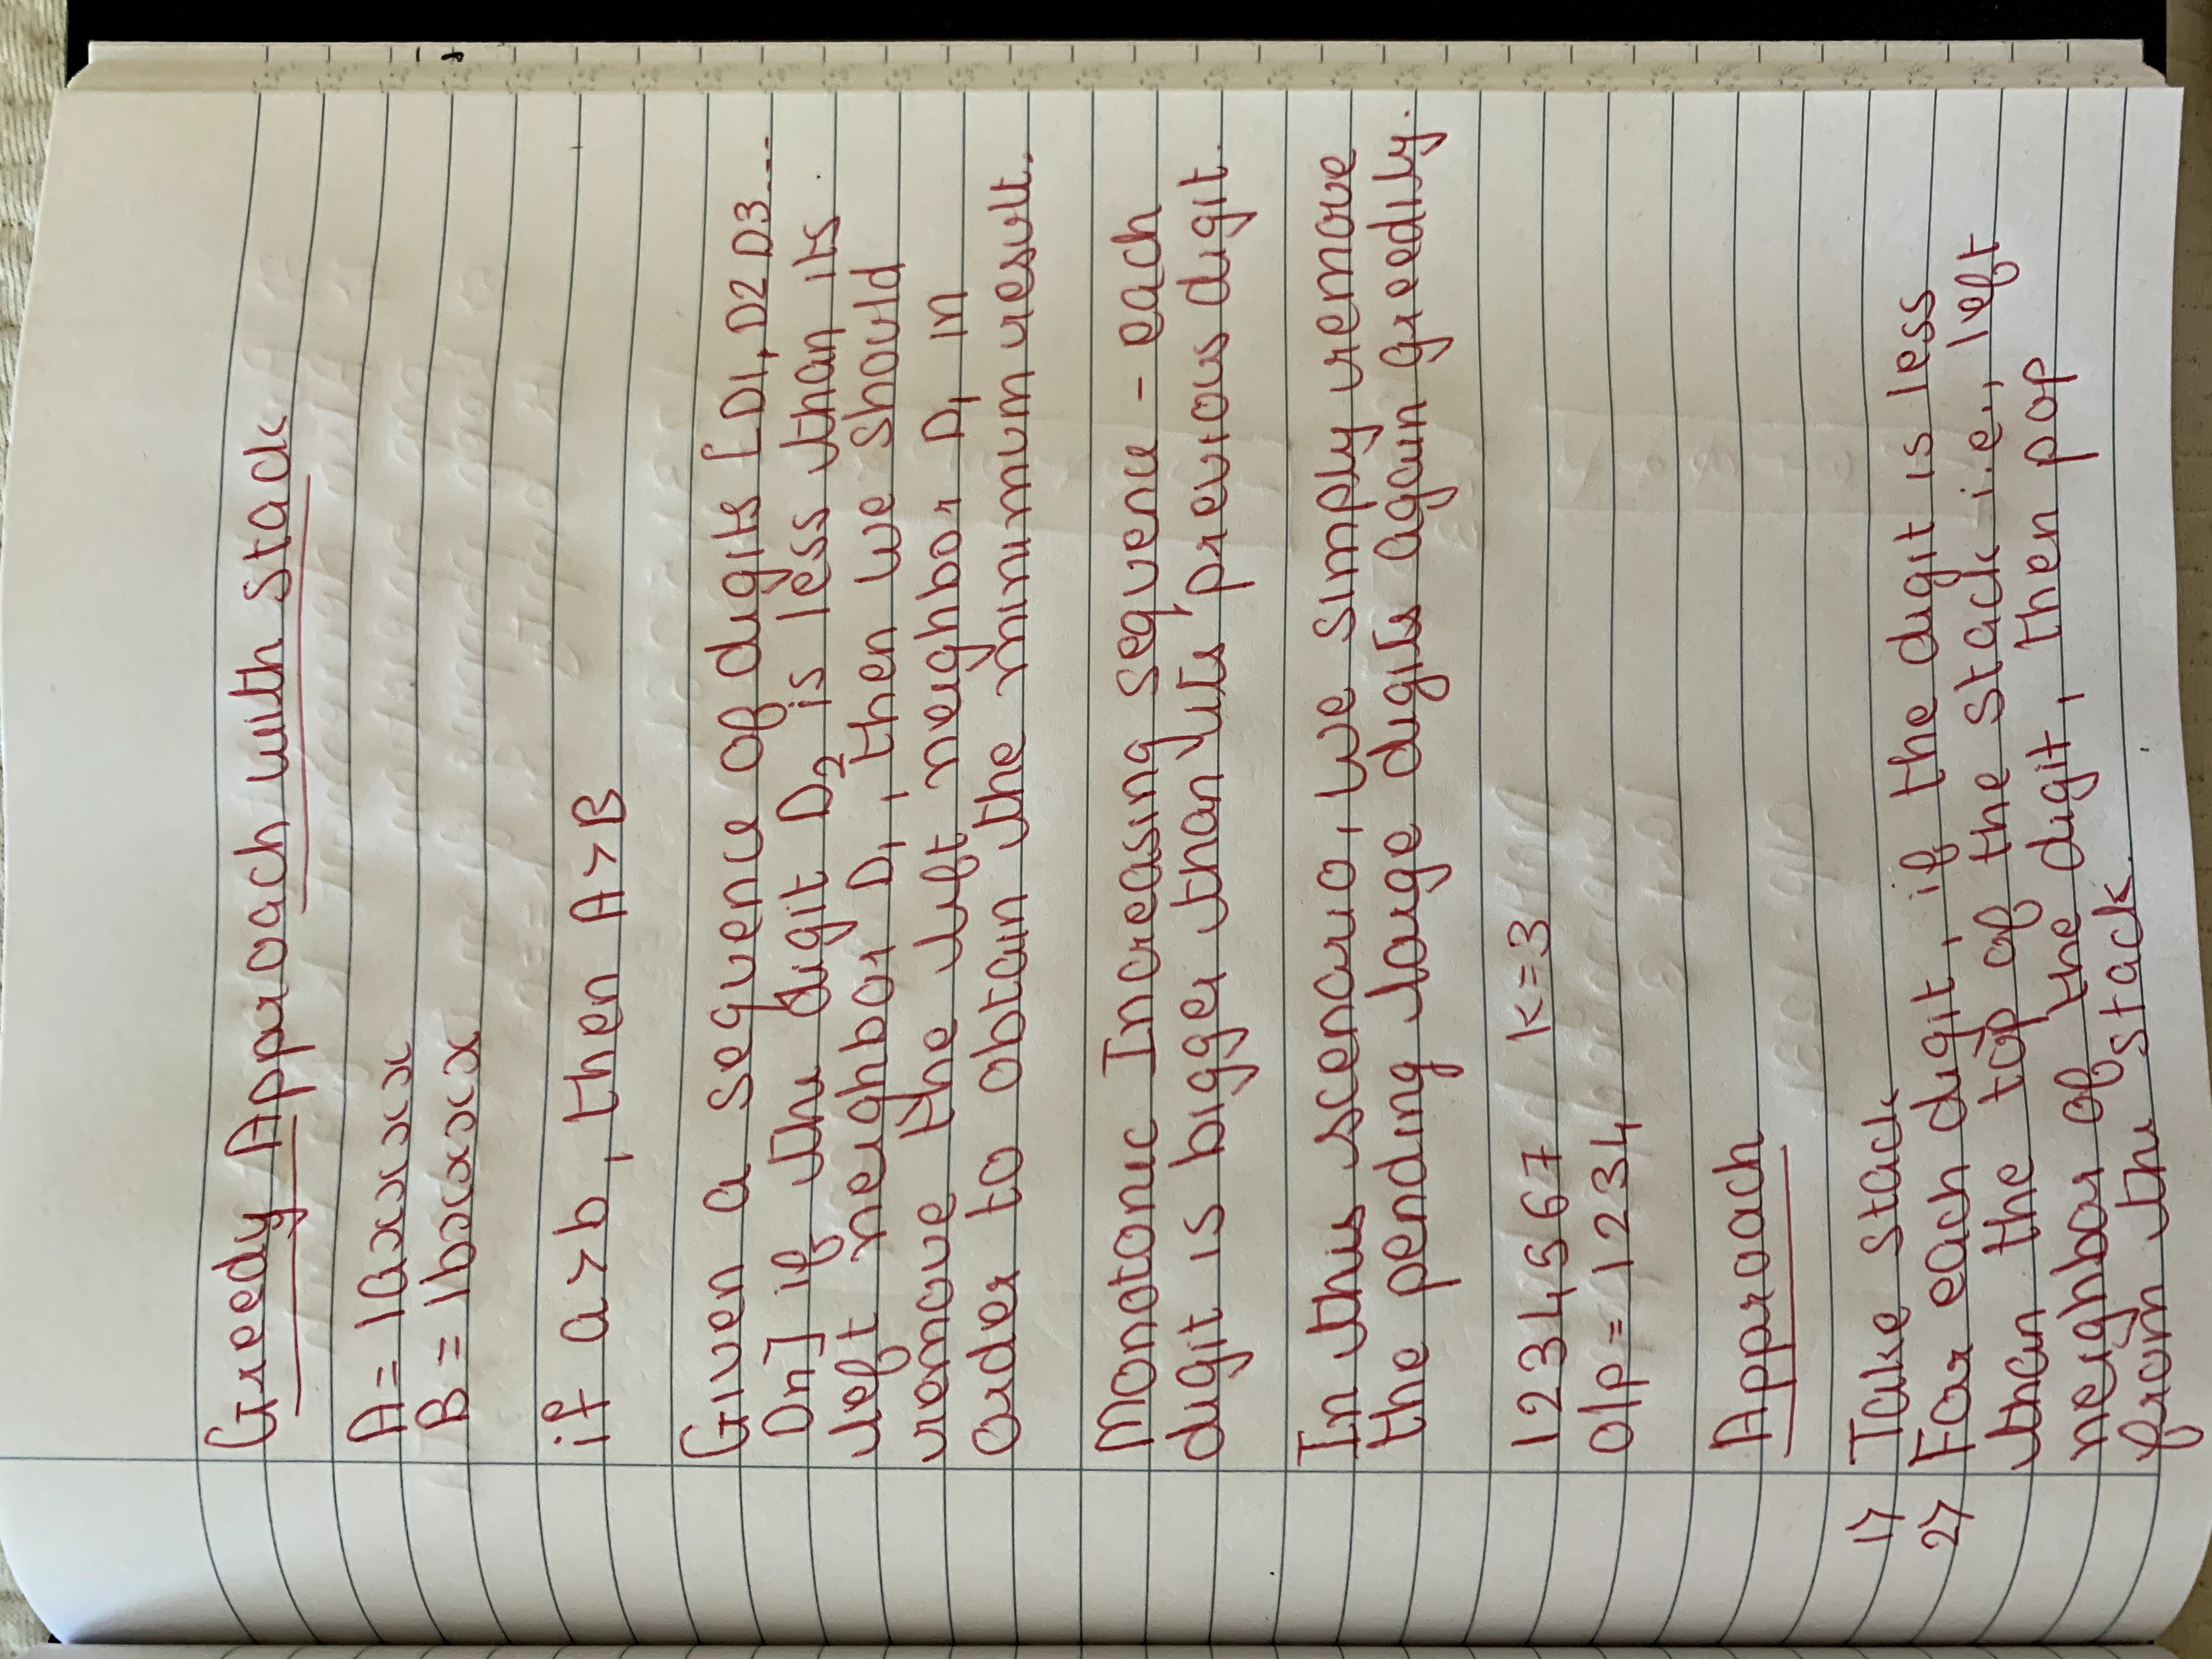 Greedy Approach with stack
A = 1axxxx
B = 1bxxxx
if a > b, then A > B
Given a sequence of digits [D1, D2 D3...
Dn] if the digit D2 is less than its
left neighbor D1, then we should
remove the left neighbor D1 in
order to obtain the minimum result.
Monotonic Increasing sequence - each
digit is bigger than its previous digit.
In this scenario, we simply remove
the pending large digits again greedily.
1234567 K=3
O/p = 1234
Approach
1) Take stack
2) For each digit, if the digit is less
than the top of the stack i.e., left
neighbor of the digit, then pop
from the stack.